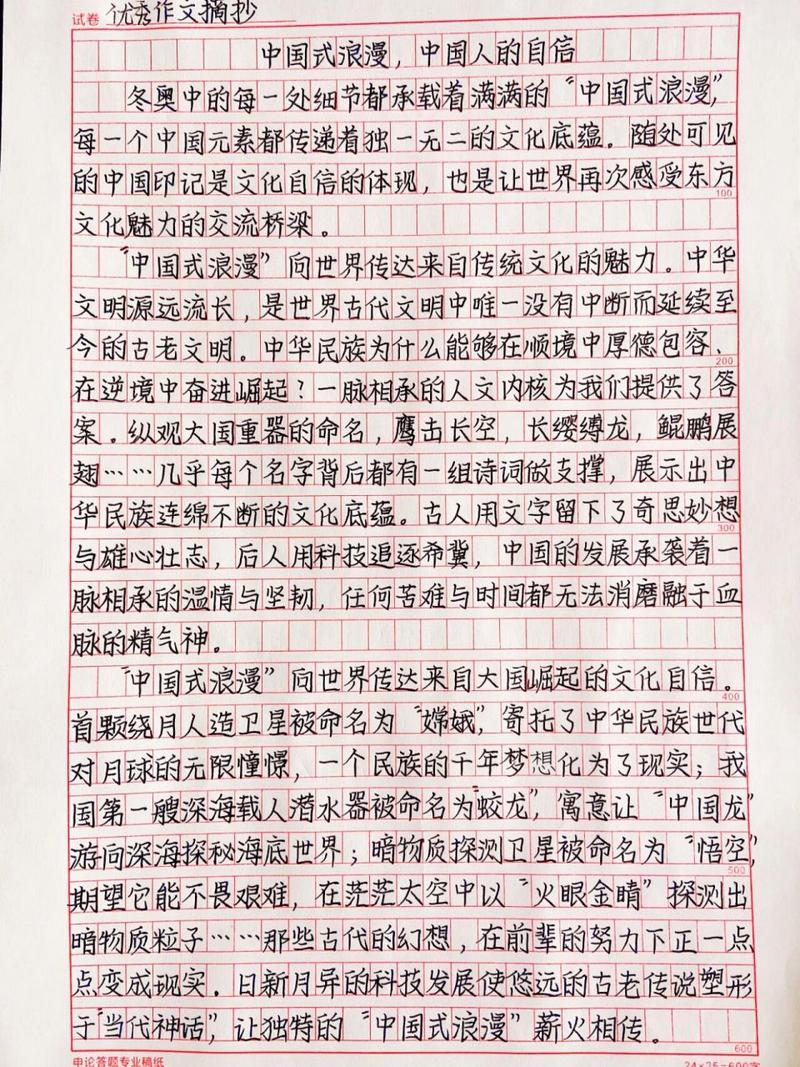 试卷 优秀作文摘抄
中国式浪漫，中国人的自信
冬奥中的每一处细节都承载着满满的“中国式浪漫”，
每一个中国元素都传递着独一无二的文化底蕴。随处可见
的中国印记是文化自信的体现，也是让世界再次感受东方
100
文化魅力的交流桥梁。
“中国式浪漫”向世界传达来自传统文化的魅力。中华
文明源远流长，是世界古代文明中唯一没有中断而延续至
今的古老文明。中华民族为什么能够在顺境中厚德包容、
200
在逆境中奋进崛起？一脉相承的人文内核为我们提供了答
案。纵观大国重器的命名，鹰击长空，长缨缚龙，鲲鹏展
翅……几乎每个名字背后都有一组诗词做支撑，展示出中
华民族连绵不断的文化底蕴。古人用文字留下了奇思妙想
300
与雄心壮志，后人用科技追逐希冀，中国的发展承袭着一
脉相承的温情与坚韧，任何苦难与时间都无法消磨融于血
脉的精气神。
“中国式浪漫”向世界传达来自大国崛起的文化自信。
400
首颗绕月人造卫星被命名为“嫦娥”，寄托了中华民族世代
对月球的无限憧憬，一个民族的千年梦想化为了现实；我
国第一艘深海载人潜水器被命名为“蛟龙”，寓意让“中国龙”
游向深海探秘海底世界；暗物质探测卫星被命名为“悟空”，
500
期望它能不畏艰难，在茫茫太空中以“火眼金睛”探测出
暗物质粒子……那些古代的幻想，在前辈的努力下正一点
点变成现实。日新月异的科技发展使悠远的古老传说塑形
于“当代神话”，让独特的“中国式浪漫”薪火相传。
600
申论答题专业稿纸
24×25=600字